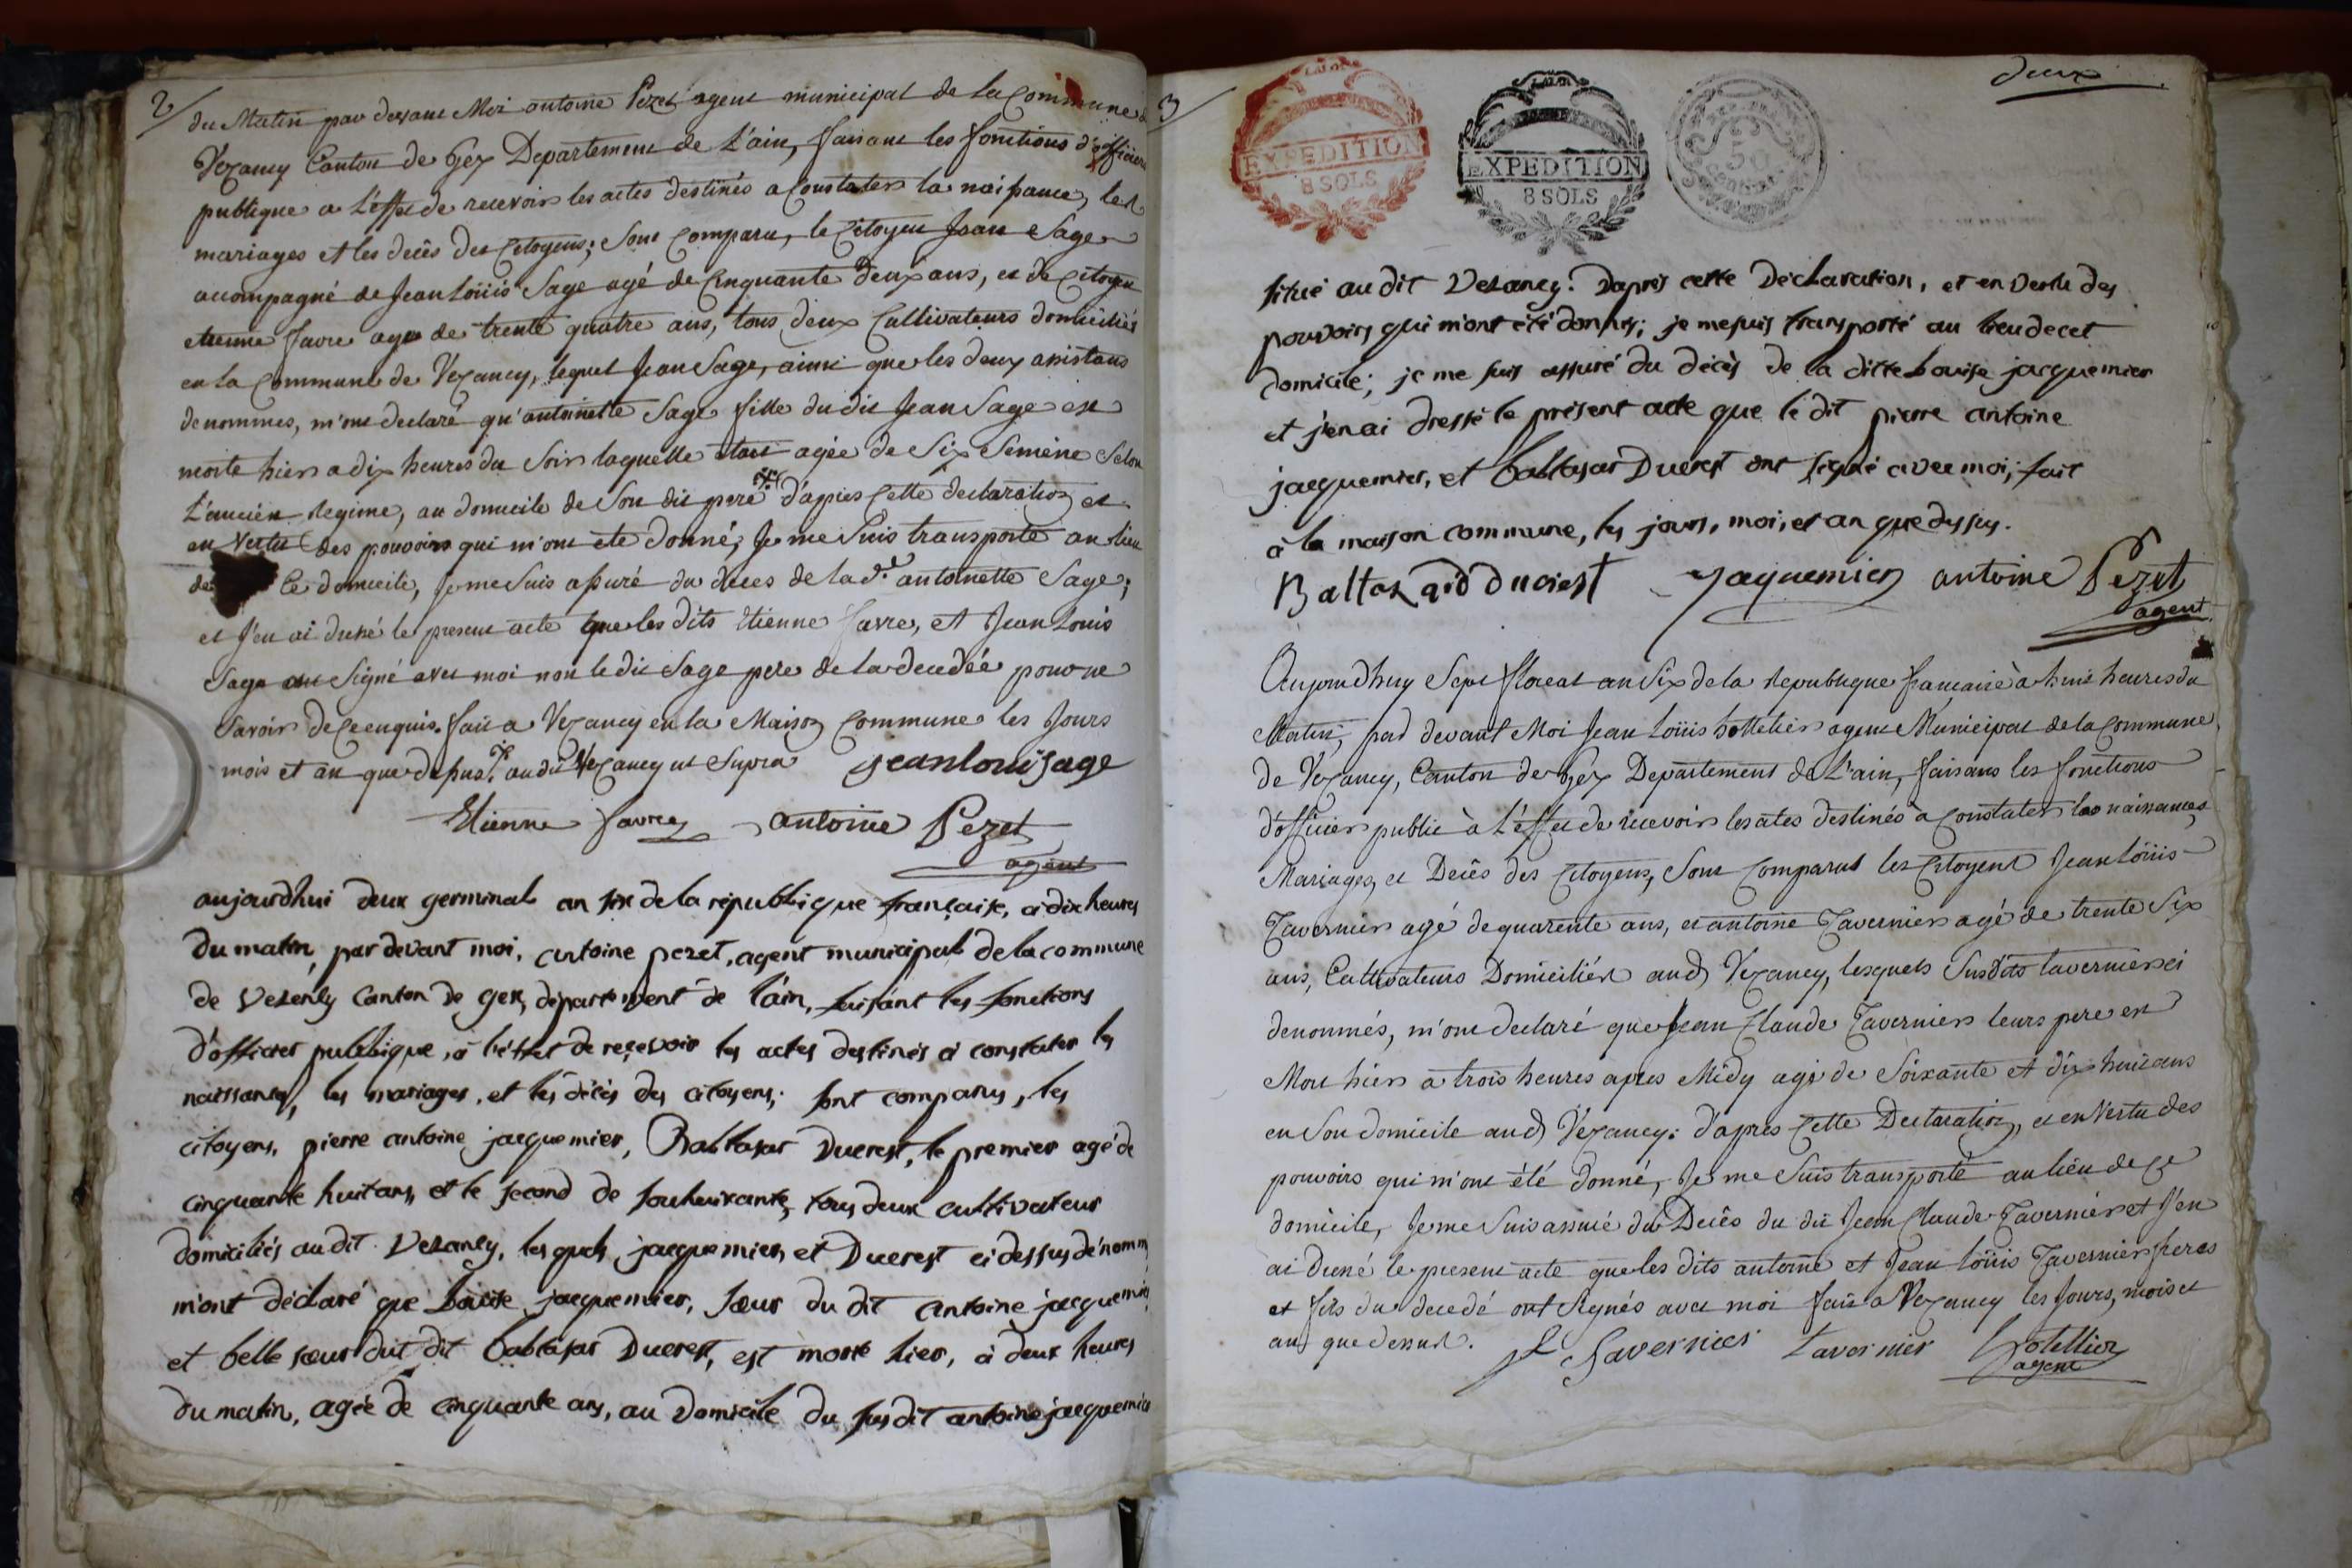 2/
du Matin par devant Moi antoine Pezet agent municipal de la Commune d
Vezancy Canton de Gex Departement de L'ain, faisant les fonctions d'officier
publique a L'effet de recevoir les actes destinés a Constater la naissance, les
mariages et les decès des Citoyens; sont Comparu, le Citoyen Jean Sage
acompagné de Jean Loüis Sage agé de Cinquante deux ans, et de Citoyen
etienne favre agé de trente quatre ans, tous deux Cultivateurs domiciliés
en la Commune de Vezancy, lequel Jean Sage, ainsi que les deux assistans
denommes, m'ont declaré qu'antoinette Sage fille du dit Jean Sage est
morte hier a dix heures du Soir laquelle etait agée de Six Semène Selon
L'ancien Regime, au domicile de Son dit pere d'apres Cette declaration et
en Vertu des pouvoirs qui m'ont ete donné, Je me Suis transporté au lieu
de Ce domicile, Je me Suis assuré du deces de la d.e antoinette Sage;
et J'en ai dressé le present acte que les dits Etienne favre, et Jean Louis
Sage ont Signé avec moi non le dit Sage pere de la decedée pour ne
Savoir de Ce enquis. fait a Vezancy en la Maison Commune les Jours
mois et an que dessus. au dit Vezancy ut Supra jeanlouisage
Etienne favre antoine Pezet
agent
aujourdhui deux germinal an six de la république française, à dix heures
du matin, par devant moi, antoine pezet, agent municipal de la commune
de Vezency Canton de gex, département de l'ain, faisant les fonctions
d'officier publique, à l'éffet de reçevoir les actes destinés à constater les
naissances, les mariages, et les décès des citoyens; sont comparus, les
citoyens, pierre antoine jacquemier, Baltasar Ducrest, le premier agé de
cinquante huit ans, et le second de souhuixante, tous deux cultivateur
domiciliés audit Vezancy, les quels, jacquemier, et Ducrest ci dessus dénomm
m'ont déclaré que Louise jacquemier, sœur du dit antoine jacquemier
et belle sœur dut dit baltasar Ducrest, est morte hier, à deux heures
du matin, agée de cinquante ans, au Domicile du susdit antoine jacquemier
3/
deux
EXPEDITION
8 SOLS
EXPEDITION
8 SOLS
50
situé audit Vezancy. D'après cette Déclaration, et en vertu des
pouvoirs qui m'ont été donnés; je me suis transporté au lieu de cet
domicile; je me suis assuré du décès de la ditte Louise jacquemier
et j'en ai dressé le présent acte que le dit pierre antoine
jacquemier, et baltasar Ducrest ont signé avec moi; fait
à la maison commune, les jours, moi, et an que dessus.
Baltazard ducrest Jaquemier antoine Pezet
agent
Aujourdhuy Sept floreal an Six de la Republique française à huit heures du
Matin, par devant Moi Jean Loüis hottelier agent Municipal de la Commune
de Vezancy, Canton de Gex Departement de L'ain, faisans les fonctions
d'officier public à L'éffet de recevoir les actes destinés à Constater les naissances,
Mariages, et Decès des Citoyens, Sont Comparut les Citoyent Jean Loüis
Tavernier agé de quarente ans, et antoine Tavernier agé de trente Six
ans, Cultivateurs Domiciliér aud Vezancy, lesquels Susdits tavernier ci
denommés, m'ont declaré que Jean Claude Tavernier leurs pere est
Mort hier a trois heures apres Midy agé de Soixante et dix huit ans
en Son domicile aud Vezancy: d'après Cette Declaration, et en Vertu des
pouvoirs qui m'ont été donné, Je me Suis transporté au lieu de Ce
domicile, Je me Suis assuré du Decès du dit Jean Claude Tavernier et J'en
ai dressé le present acte que les dits antoine et Jean Loüis Tavernier freres
et fils du decedé ont Signés avec moi fait a Vezancy les Jours, mois et
an que dessus. JL Tavernier tavernier hotellier
agent